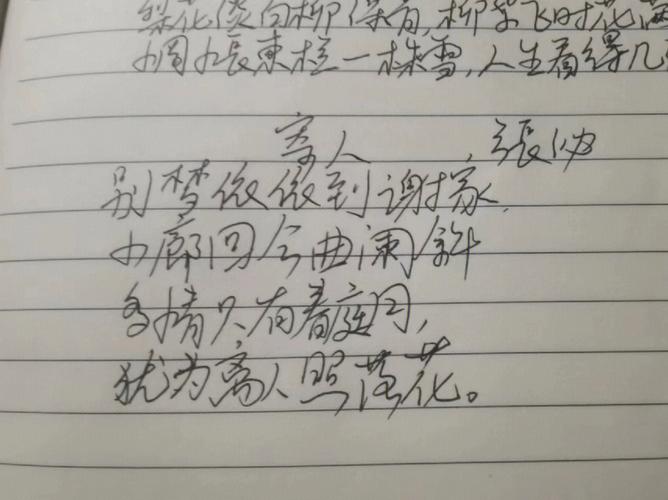 梨花淡白柳深青,柳絮飞时花满
惆怅東栏一株雪,人生看得几
寄人 張泌
别梦依依到谢家,
小廊回合曲阑斜
多情只有春庭月,
犹为离人照落花。